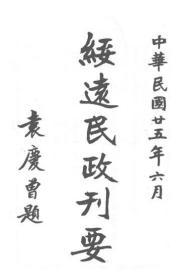 中華民國廿五年六月
綏遠民政刊要
袁慶曾題